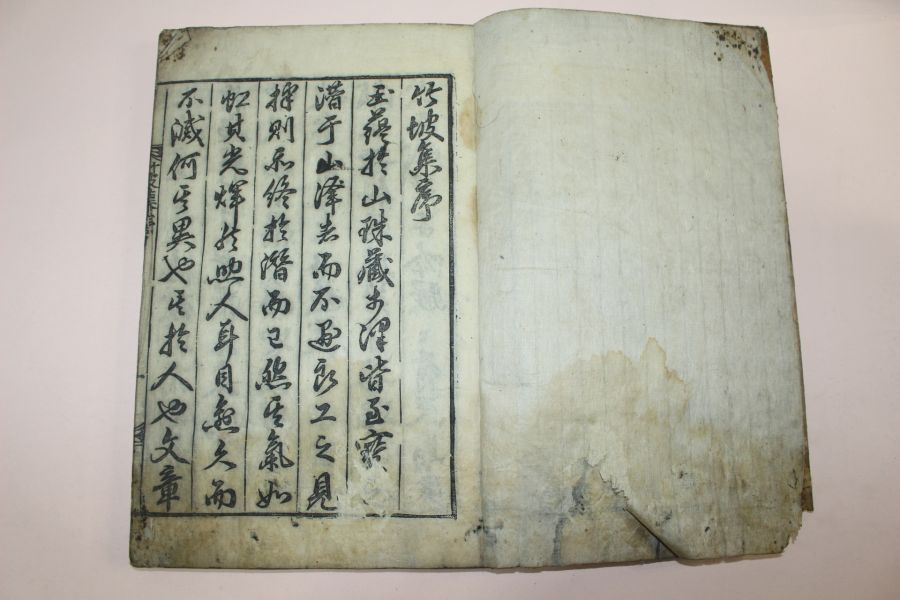 竹坡集序
玉蘊於山珠藏于澤皆至寶
潛于山澤者而不遇良工之見
採則示終於潛而已然其氣如
虹其光輝於照人耳目愈久而
不滅何其異也其於人也文章